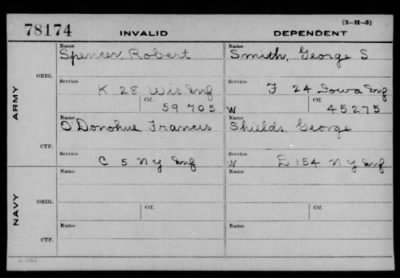 (3-H-5)
78174 INVALID DEPENDENT
Name Name
Spencer, Robert Smith, George S
ARMY
ORIG.
Service Service
K 28 Wis Inf F 24 Iowa Inf
Ctf. Ctf.
59 705 W 45275
Name Name
O'Donohue Francis Shields, George
CTF.
Service Service
C 5 N Y Inf W D 154 N Y Inf
Name Name
NAVY
ORIG.
Ctf. Ctf.
Name Name
CTF.